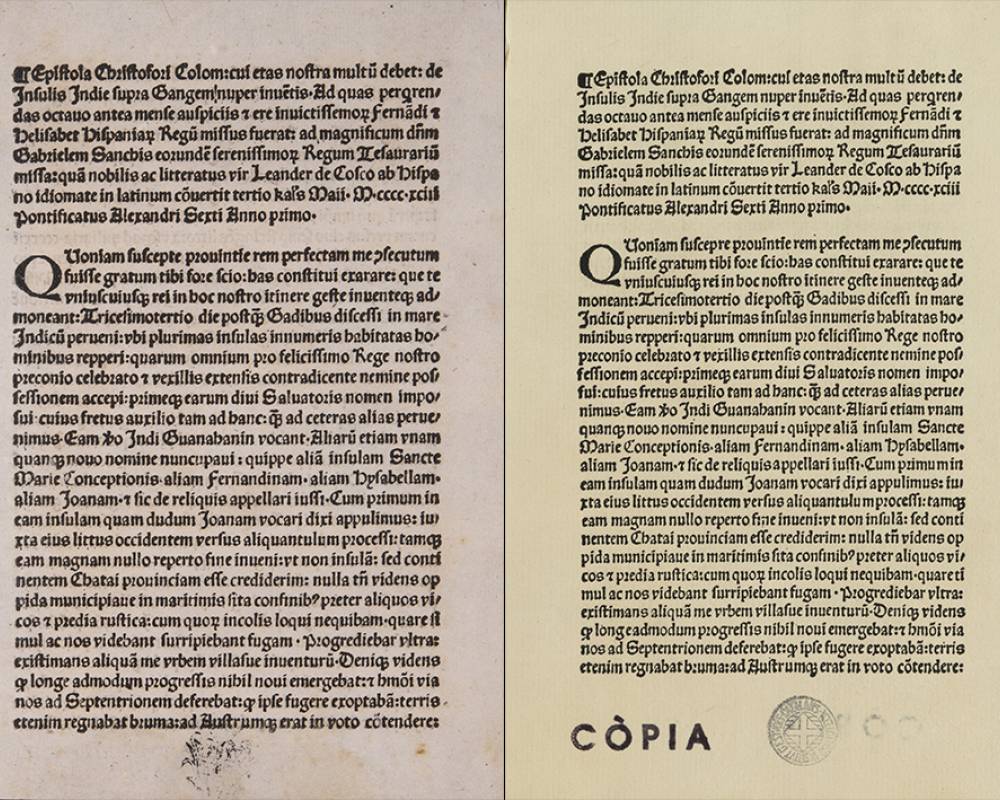 ¶ Epistola Christofori Colom: cui etas nostra multū debet: de
Insulis Indie supra Gangem nuper inuētis. Ad quas perqren/
das octauo antea mense auspiciis ⁊ ere inuictissimoꝝ Fernādi ⁊
Helisabet Hispaniaꝝ Regū missus fuerat: ad magnificum dñm
Gabrielem Sanchis eorundē serenissimoꝝ Regum Tesaurariū
missa: quā nobilis ac litteratus vir Leander de Cosco ab Hispa
no idiomate in latinum cōuertit tertio kaľs Maii· M·cccc·xciii
Pontificatus Alexandri Sexti Anno primo·
Quoniam suscepte prouintie rem perfectam me ↄsecutum
fuisse gratum tibi fore scio: has constitui exarare: que te
vniuscuiusqꝫ rei in hoc nostro itinere geste inuenteqꝫ ad/
moneant: Tricesimotertio die postq̄ꝫ Gadibus discessi in mare
Indicū perueni: vbi plurimas insulas innumeris habitatas ho/
minibus repperi: quarum omnium pro felicissimo Rege nostro
preconio celebrato ⁊ vexillis extensis contradicente nemine pos/
sessionem accepi: primeqꝫ earum diui Saluatoris nomen impo/
sui· cuius fretus auxilio tam ad hanc: q̄ꝫ ad ceteras alias perue/
nimus· Eam ꝟo Indi Guanahanin vocant· Aliarū etiam vnam
quanqꝫ nouo nomine nuncupaui: quippe aliā insulam Sancte
Marie Conceptionis· aliam Fernandinam· aliam Hysabellam·
aliam Joanam· ⁊ sic de reliquis appellari iussi· Cum primum in
eam insulam quam dudum Joanam vocari dixi appulimus: iu/
xta eius littus occidentem versus aliquantulum processi: tamqꝫ
eam magnam nullo reperto fine inueni: vt non insulā: sed conti
nentem Chatai prouinciam esse crediderim: nulla tñ videns op
pida municipiaue in maritimis sita confinibꝰ preter aliquos vi/
cos ⁊ predia rustica: cum quoꝝ incolis loqui nequibam· quare si
mul ac nos videbant surripiebant fugam · Progrediebar vltra:
existimans aliquā me vrbem villasue inuenturū· Deniqꝫ videns
ꝙ longe admodum progressis nihil noui emergebat: ⁊ hmōi via
nos ad Septentrionem deferebat: ꝙ ipse fugere exoptabā: terris
etenim regnabat bruma: ad Austrumqꝫ erat in voto cōtendere:
¶ Epistola Christofori Colom: cui etas nostra multū debet: de
Insulis Indie supra Gangem nuper inuētis· Ad quas perqren/
das octauo antea mense auspiciis ⁊ ere inuictissimoꝝ Fernādi ⁊
Helisabet Hispaniaꝝ Regū missus fuerat: ad magnificum dñm
Gabrielem Sanchis eorundē serenissimoꝝ Regum Tesaurariū
missa: quā nobilis ac litteratus vir Leander de Cosco ab Hispa
no idiomate in latinum cōuertit tertio kaľs Maii· M·cccc·xciii
Pontificatus Alexandri Sexti Anno primo·
Quoniam suscepre prouintie rem perfectam me ↄsecutum
fuisse gratum tibi fore scio: has constitui exarare: que te
vniuscuiusqꝫ rei in hoc nostro itinere geste inuenteqꝫ ad/
moneant: Tricesimotertio die postq̄ꝫ Gadibus discessi in mare
Indicū perueni: vbi plurimas insulas innumeris habitatas ho/
minibus repperi: quarum omnium pro felicissimo Rege nostro
preconio celebrato ⁊ vexillis extensis contradicente nemine pos/
sessionem accepi: primeqꝫ earum diui Saluatoris nomen impo/
sui: cuius fretus auxilio tam ad hanc: q̄ꝫ ad ceteras alias perue/
nimus· Eam ꝟo Indi Guanahanin vocant· Aliarū etiam vnam
quanqꝫ nouo nomine nuncupaui: quippe aliā insulam Sancte
Marie Conceptionis· aliam Fernandinam· aliam Hysabellam·
aliam Joanam· ⁊ sic de reliquis appellari iussi· Cum primum in
eam insulam quam dudum Joanam vocari dixi appulimus: iu/
xta eius littus occidentem versus aliquantulum processi: tamqꝫ
eam magnam nullo reperto fine inueni: vt non insulā: sed conti
nentem Chatai prouinciam esse crediderim: nulla tñ videns op
pida municipiaue in maritimis sita confinibꝰ preter aliquos vi/
cos ⁊ predia rustica: cum quoꝝ incolis loqui nequibam· quare ti
mul ac nos videbant surripiebant fugam · Progrediebar vltra:
existimans aliquā me vrbem villasue inuenturū· Deniqꝫ videns
ꝙ longe admodum progressis nihil noui emergebat: ⁊ hmōi via
nos ad Septentrionem deferebat: ꝙ ipse fugere exoptabā: terris
etenim regnabat bruma: ad Austrumqꝫ erat in voto cōtendere:
CÒPIA